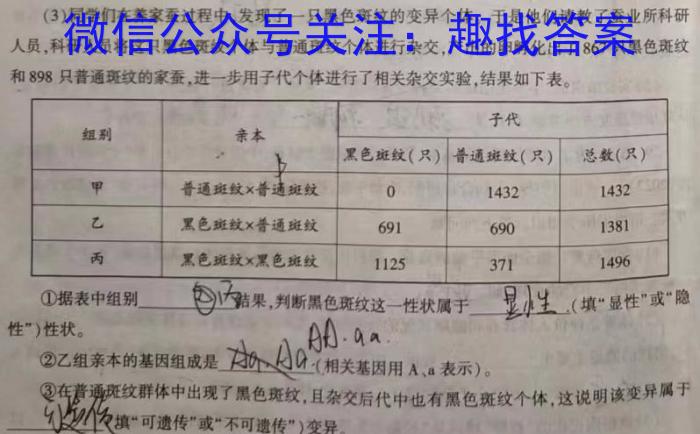 (3)同学们在养家蚕过程中,发现了一只黑色斑纹的变异个体。于是他们请教了蚕业所科研
微信公众号关注:趣找答案
人员,科研人员将这只黑色斑纹个体与普通斑纹个体进行杂交,只黑色斑纹
和898只普通斑纹的家蚕,进一步用子代个体进行了相关杂交实验,结果如下表。
组别 亲本 子代
黑色斑纹(只) 普通斑纹(只) 总数(只)
甲 普通斑纹×普通斑纹 0 1432 1432
乙 黑色斑纹×普通斑纹 691 690 1381
丙 黑色斑纹×黑色斑纹 1125 371 1496
①据表中组别 丙 结果,判断黑色斑纹这一性状属于 显性 .(填“显性”或“隐
性”)性状。
AA.aa.
②乙组亲本的基因组成是 Aa.Aa (相关基因用A、a表示)。
③在普通斑纹群体中出现了黑色斑纹,且杂交后代中也有黑色斑纹个体,这说明该变异属于
可遗传(填“可遗传”或“不可遗传”)变异。